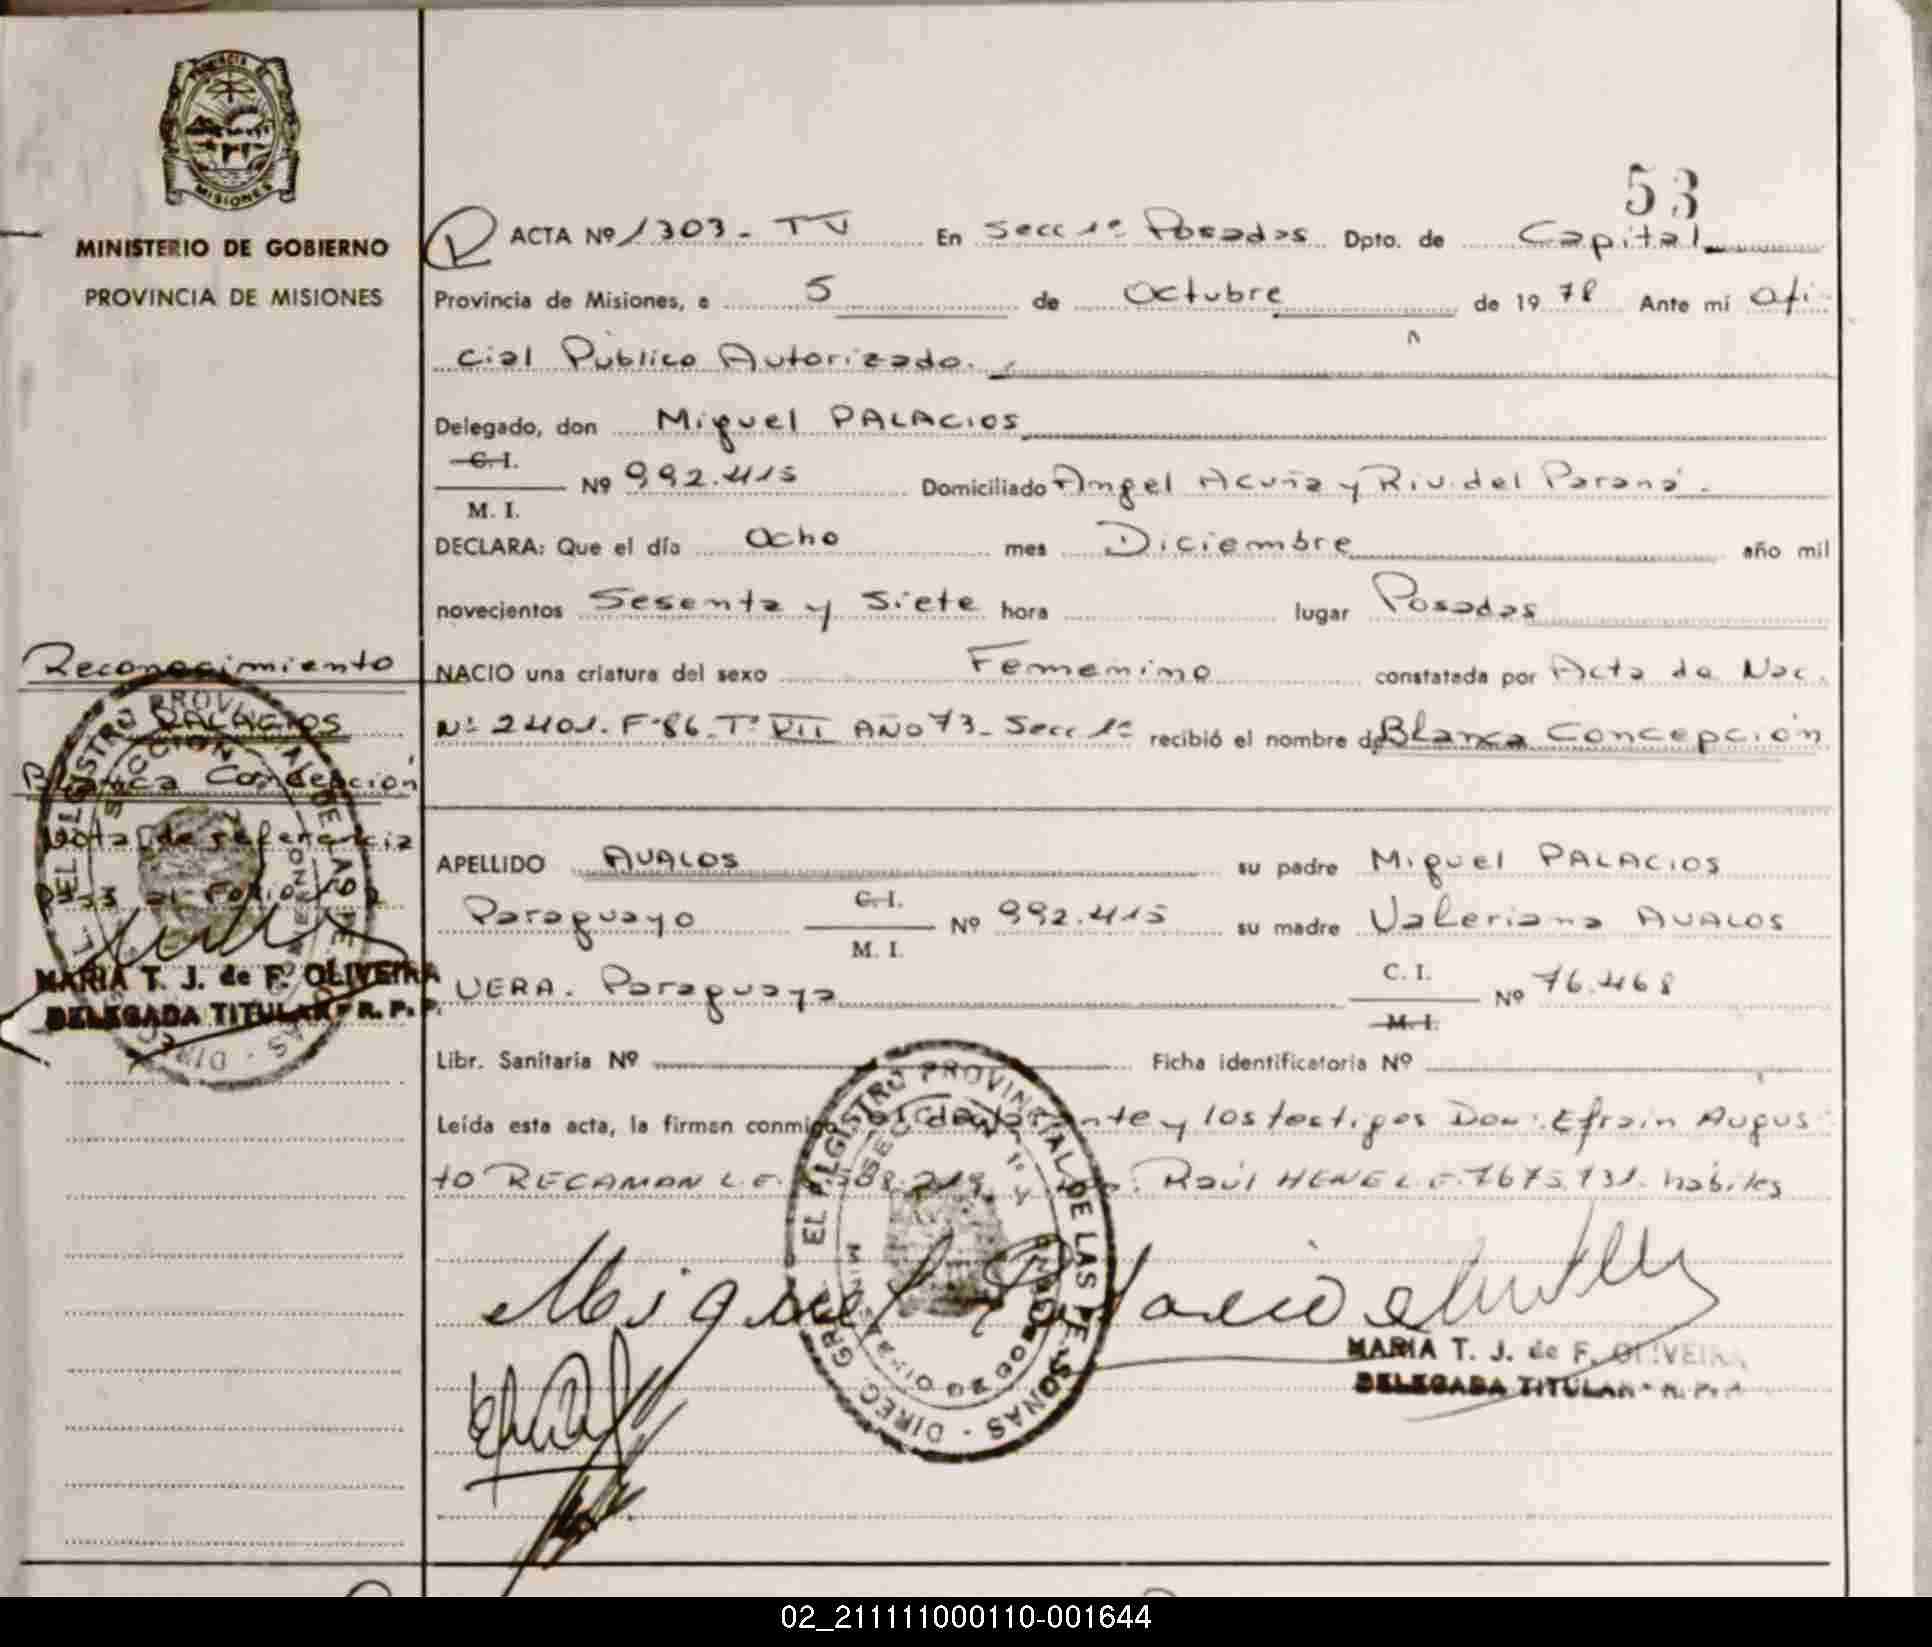 PROVINCIA DE
MISIONES
MINISTERIO DE GOBIERNO
PROVINCIA DE MISIONES
Reconocimiento
PALACIOS
Blanca Concepción
Nota de referencia
Pasa al Folio
MARIA T. J. de F. OLIVEIRA
DELEGADA TITULAR - R. P. P.
53
ACTA Nº 1303 - TV En Secc 1ª Posadas Dpto. de Capital
Provincia de Misiones, a 5 de Octubre de 1978 Ante mí Ofi
cial Público Autorizado.
Delegado, don Miguel PALACIOS
C. I.
M. I. Nº 992.415 Domiciliado Angel Acuña y Riv. del Paraná.
DECLARA: Que el día Ocho mes Diciembre año mil
novecientos Sesenta y Siete hora lugar Posadas
NACIO una criatura del sexo Femenino constatada por Acta de Nac.
Nº 2401. Fº 86. Tº VII AÑO 73. Secc 1ª recibió el nombre de Blanca Concepción
APELLIDO AVALOS su padre Miguel PALACIOS
Paraguayo C. I.
M. I. Nº 992.415 su madre Valeriana AVALOS
VERA. Paraguaya C. I.
M. I. Nº 76.468
Libr. Sanitaria Nº Ficha identificatoria Nº
Leída esta acta, la firman conmigo el declarante y los testigos Don: Efrain Augus
to RECAMAN L.E. Raúl HENE L.E. 7675.131. hábiles
EL REGISTRO PROVINCIAL DE LAS PERSONAS - DIREC. GRAL.
Miguel Palacio
MARIA T. J. de F. OLIVEIRA
DELEGADA TITULAR - R. P. P.
02_211111000110-001644